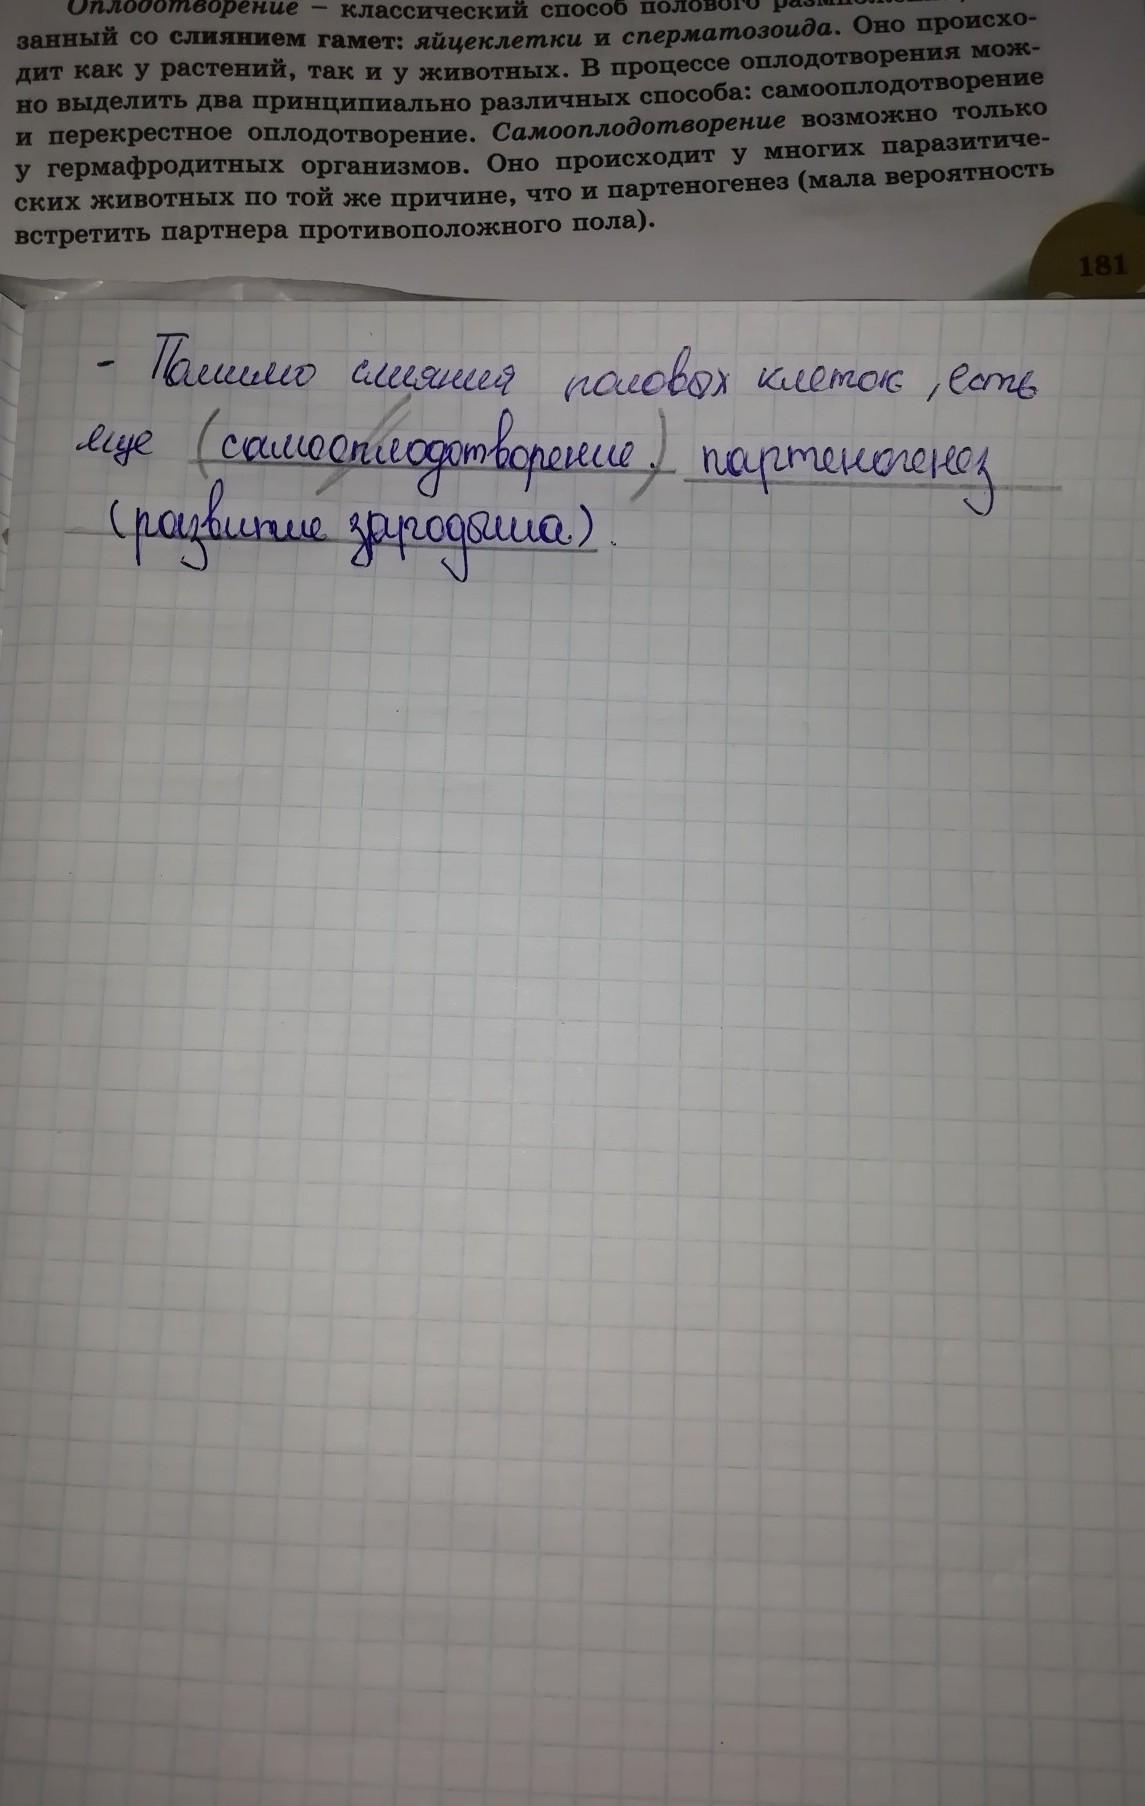 Оплодотворение – классический способ полового
занный со слиянием гамет: яйцеклетки и сперматозоида. Оно происхо-
дит как у растений, так и у животных. В процессе оплодотворения мож-
но выделить два принципиально различных способа: самооплодотворение
и перекрестное оплодотворение. Самооплодотворение возможно только
у гермафродитных организмов. Оно происходит у многих паразитиче-
ских животных по той же причине, что и партеногенез (мала вероятность
встретить партнера противоположного пола).
181
- Помимо слияния половых клеток, есть
еще (самооплодотворение,) партеногенез
(развитие зародыша).